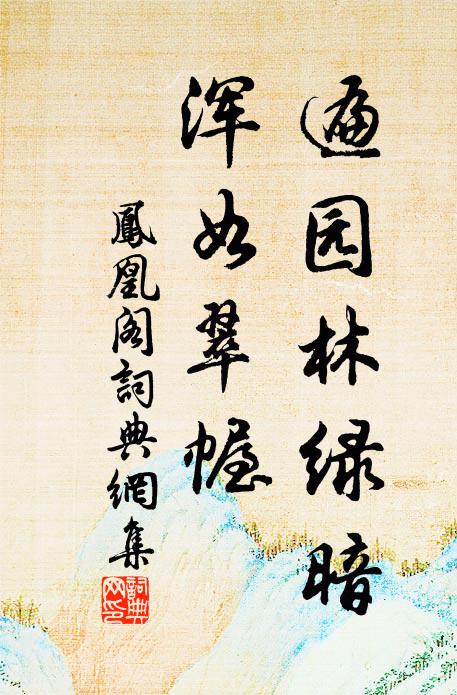 遍园林绿暗
浑如翠幄
鳳凰阁詞典網集
詞典
网印